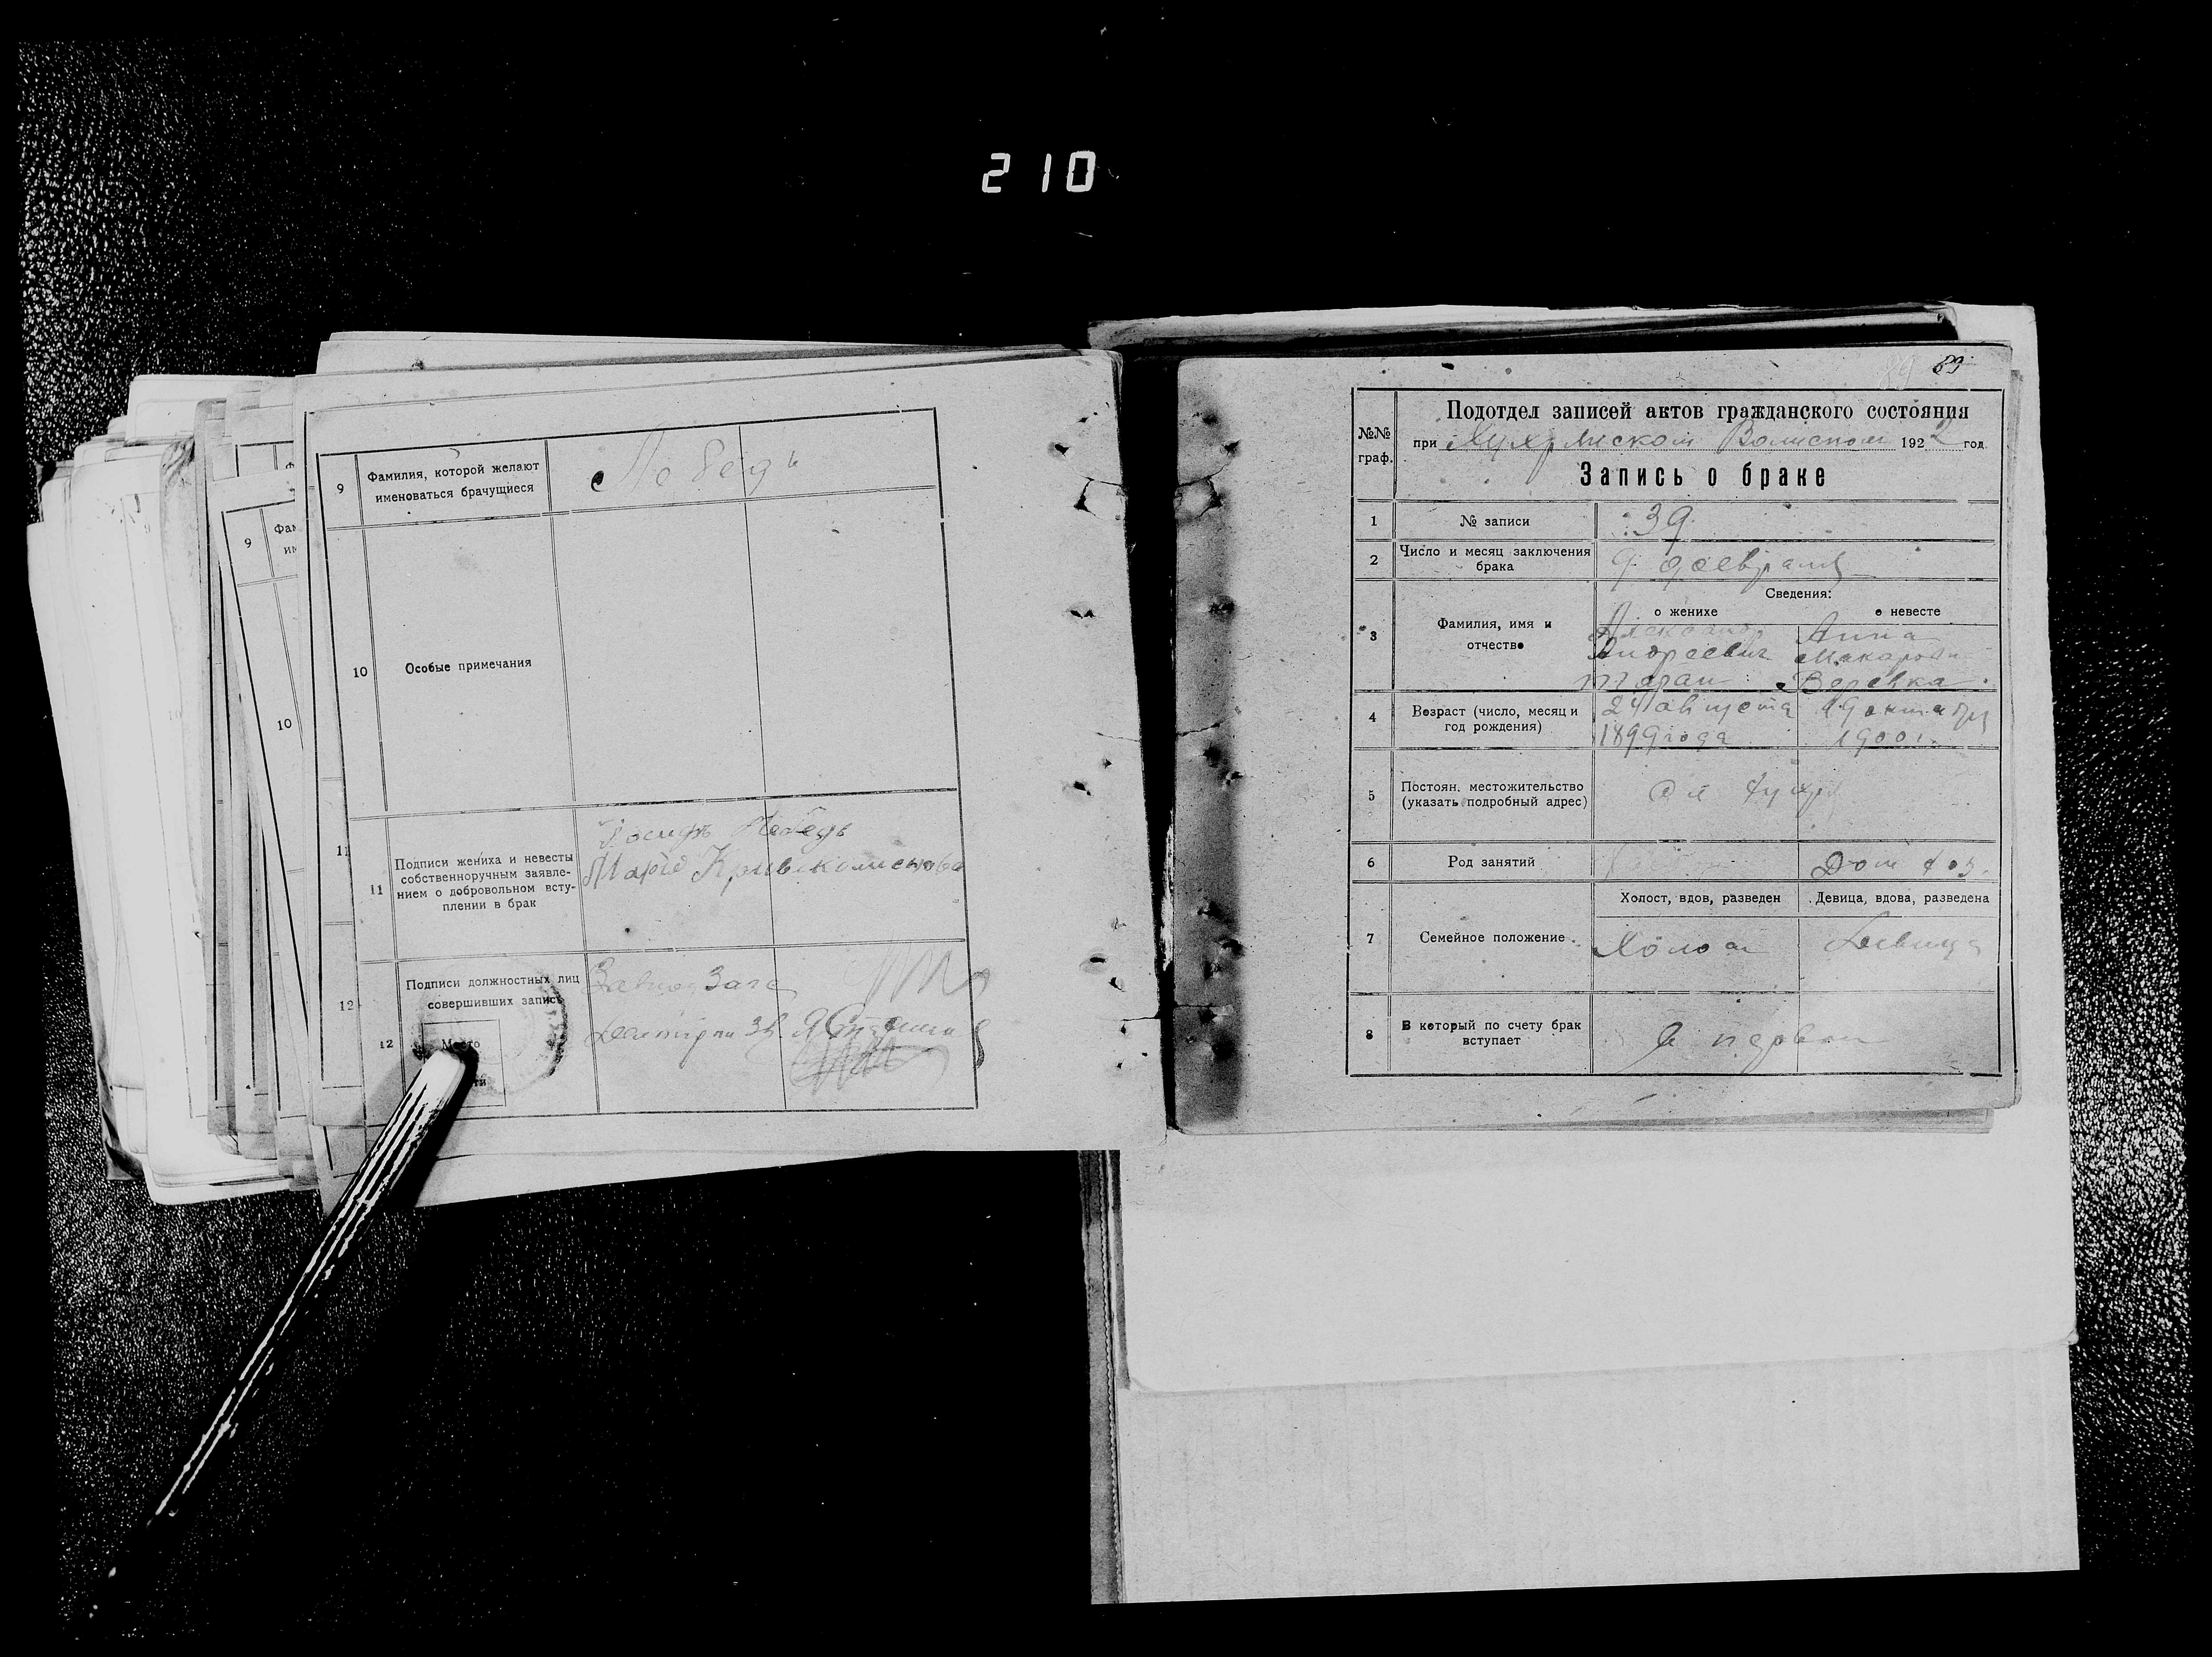 210
9
Фамилия, которой желают
именоваться брачущиеся
Лебедь
10
Особые примечания
11
Подписи жениха и невесты
собственноручным заявле-
нием о добровольном всту-
плении в брак
Лебедь
12
Подписи должностных лиц
совершивших запись
Место
9
10
11
12
89 89
№№
граф.
Подотдел записей актов гражданского состояния
при Волисполк 1922 год
Запись о браке
1
№ записи
39
2
Число и месяц заключения
брака
9 февраля
Сведения:
о женихе
о невесте
3
Фамилия, имя и
отчество
Александр
Андреевич
Таран
Анна
Макаровн
Веревка
4
Возраст (число, месяц и
год рождения)
24 августа
1899 года
19 октября
1900 г.
5
Постоян. местожительство
(указать подробный адрес)
6
Род занятий
Дом хоз.
7
Семейное положение
Холост, вдов, разведен
Девица, вдова, разведена
Холост
Девица
8
В который по счету брак
вступает
в первый